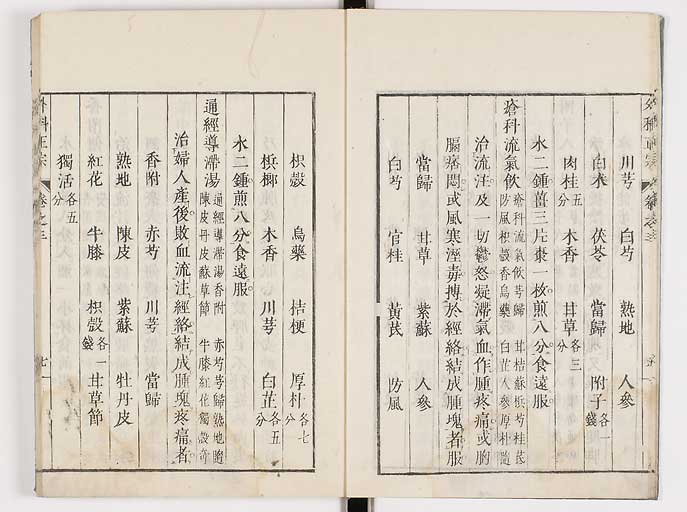 川芎 白芍 熟地 人參
白朮 茯苓 當歸 附子各一錢
肉桂五分 木香 甘草各三分
水二鍾薑三片棗一枚煎八分食遠服
瘡科流氣飲瘡科流氣飲芎歸 甘桔蘇檳芍桂芪 防風枳殼香烏藥 白芷人參厚朴隨
治流注及一切鬱怒凝滯氣血作腫疼痛或胸
膈痞悶或風寒溼毒搏於經絡結成腫塊者服
當歸 甘草 紫蘇 人參
白芍 官桂 黃芪 防風
枳殼 烏藥 桔梗 厚朴各七分
檳榔 木香 川芎 白芷各五分
水二鍾煎八分食遠服
通經導滯湯通經導滯湯香附 赤芍芎歸熟地隨 陳皮丹皮蘇草節 牛膝紅花獨殼奇
治婦人產後敗血流注經絡結成腫塊疼痛者
香附 赤芍 川芎 當歸
熟地 陳皮 紫蘇 牡丹皮
紅花 牛膝 枳殼各一錢 甘草節
獨活各五分
外科正宗 卷之三